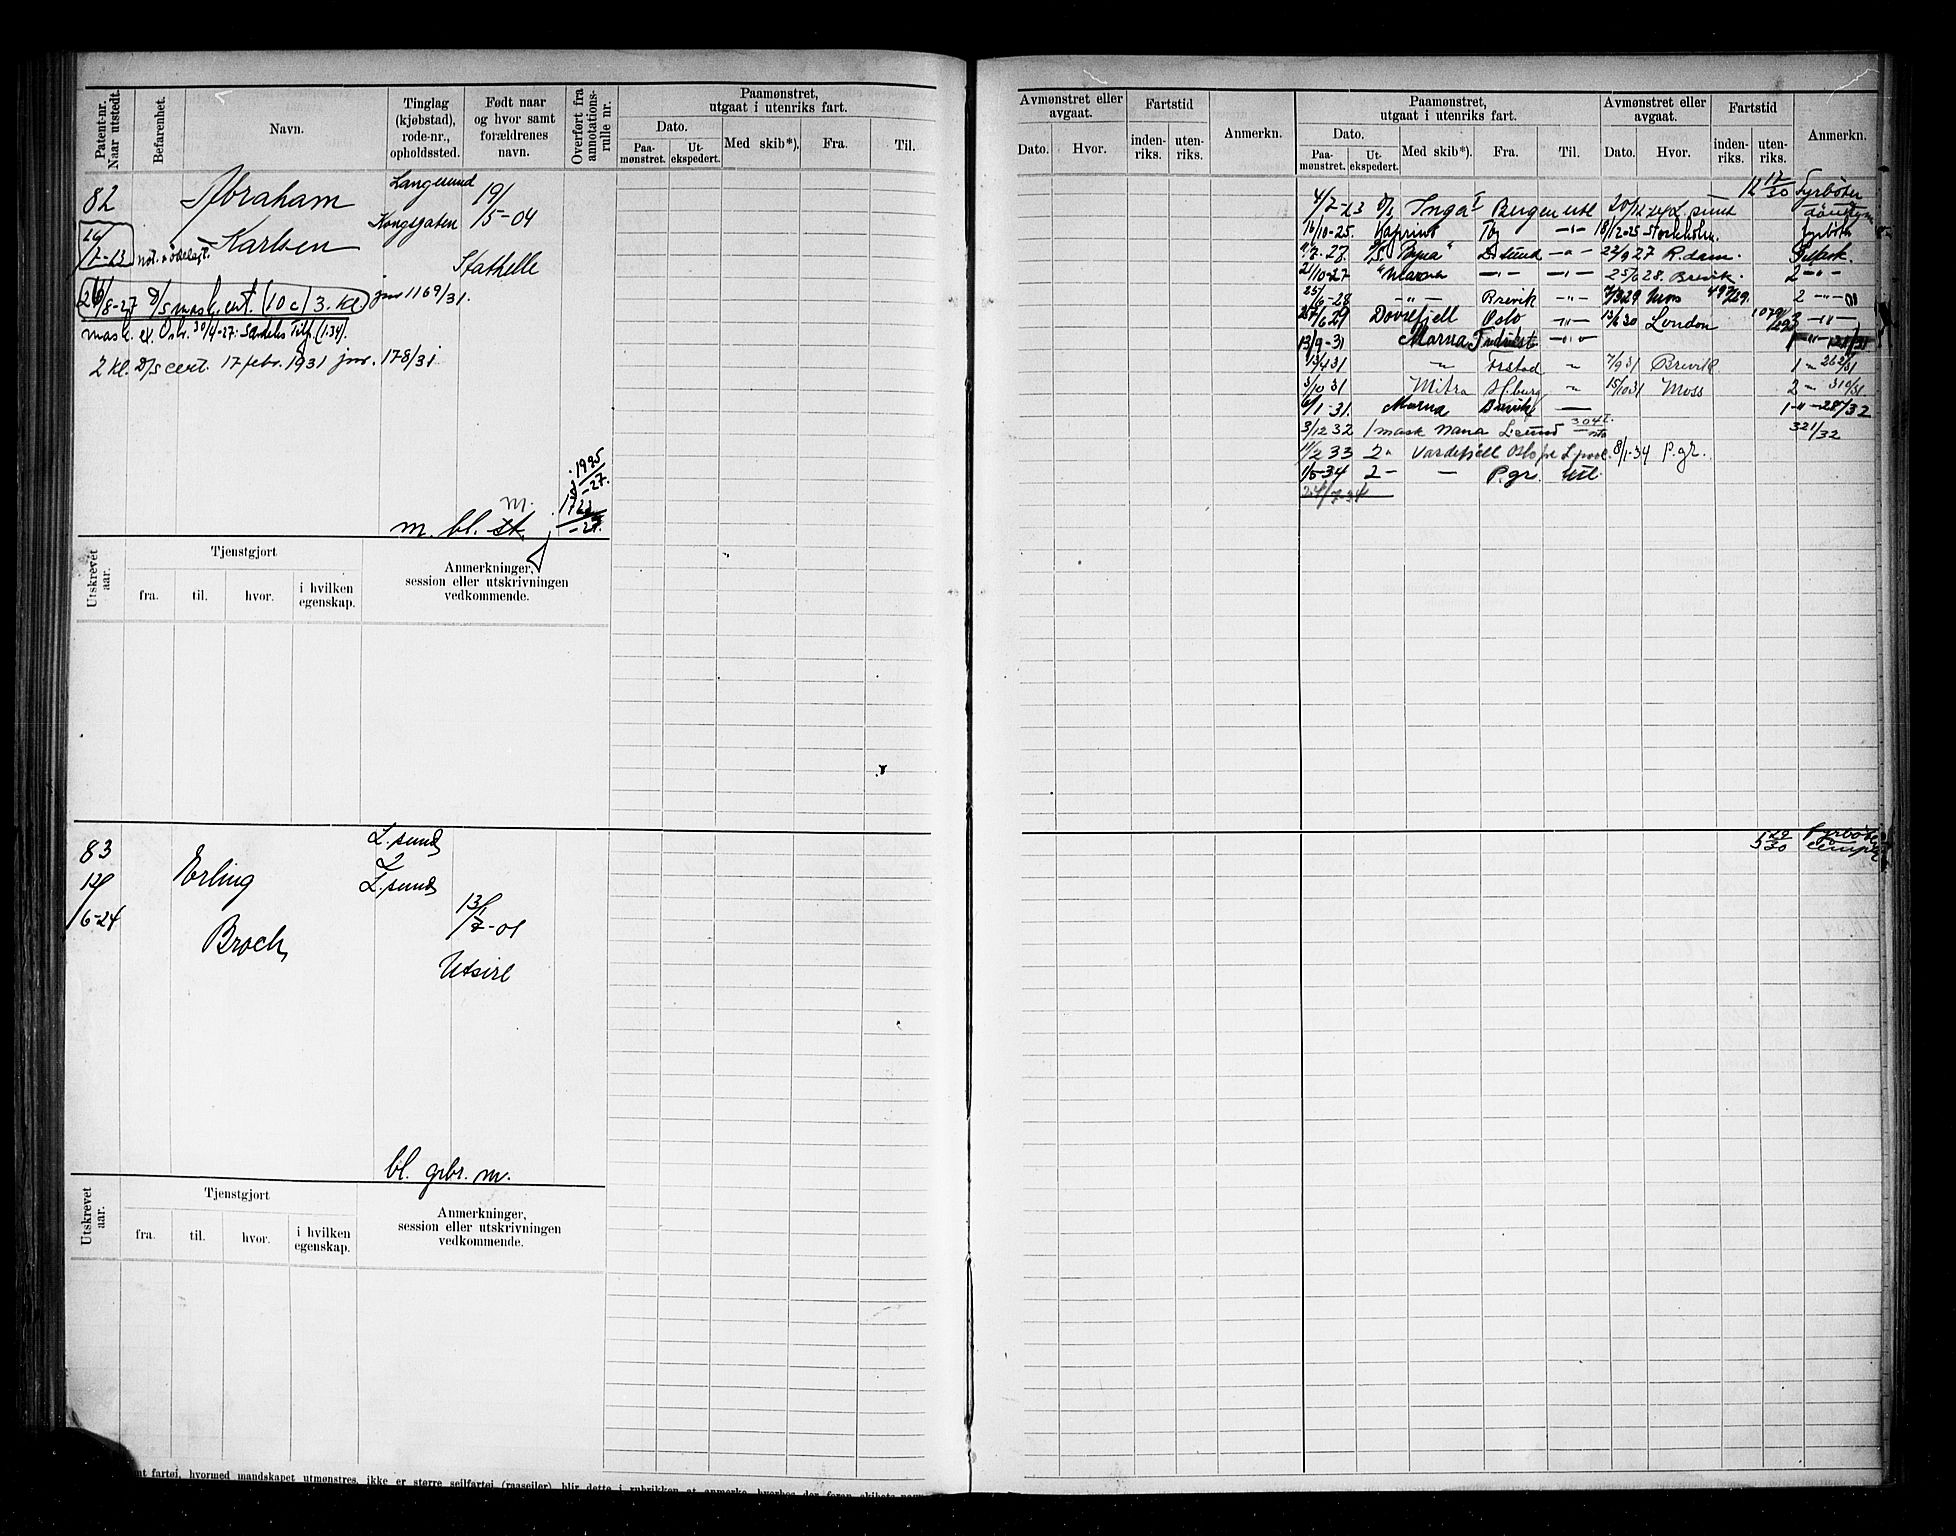 Patent-nr. Naar utstedt.
Befarenhet.
Navn.
Tinglag (kjøbstad), rode-nr., opholdssted.
Født naar og hvor samt forældrenes navn.
Overført fra annotations-rulle nr.
Paamønstret, utgaat i utenriks fart.
Dato.
Paa-mønstret.
Ut-ekspedert.
Med skib*).
Fra.
Til.
82
Abraham
Karlsen
Langesund
Kongsgaten
19/5-04
Stathelle
26/8-27 D/s mask. cert. (10 c) 3. kl. jnr 1169/31.
2 kl. D/s cert. 17 febr. 1931 jnr. 178/31
m. bl.
Utskrevet aar.
Tjenstgjort
fra.
til.
hvor.
i hvilken egenskap.
Anmerkninger, session eller utskrivningen vedkommende.
83
12/6-24
Erling
Broch
L.sund
L.sund
13/7-01
Utsire
bl. grbr. m.
Utskrevet aar.
Tjenstgjort
fra.
til.
hvor.
i hvilken egenskap.
Anmerkninger, session eller utskrivningen vedkommende.
fartøi, hvormed mandskapet utmønstres, ikke er større seilfartøi (raaseiler) blir dette i rubrikken at anmerke,
Avmønstret eller avgaat.
Dato.
Hvor.
Fartstid
inden-riks.
uten-riks.
Anmerkn.
Paamønstret, utgaat i utenriks fart.
Dato.
Paa-mønstret.
Ut-ekspedert.
Med skib*).
Fra.
Til.
Avmønstret eller avgaat.
Dato.
Hvor.
Fartstid
inden-riks.
uten-riks.
Anmerkn.
12 17/30 Fyrbøter
4/7-23 Inga I Bergen utl
16/10-25. 18/2-25 Stockholm.
22/9 27 R.dam.
21/10-27 Marna 25/6 28. Brevik. 2
25/6-28 Brevik 7/3 29 Moss 497/29. 2
Dovrefjell Oslo 13/6 30 London
13/9-31 Marna
13/4 31 Frstad 7/9 31 Brevik 1 262/31
3/10 31 Mitra H.burg 15/10 31 Moss 2 310/31
6/1-31. Marna Brevik 1 28/32
3/12 32 1 mask Nana L.sund 321/32
11/2 33 2 Vardefjell Oslo L.pool 8/1-34 P.gr.
1/5-34 2 P.gr. Utl
24/7-34
5 20/30